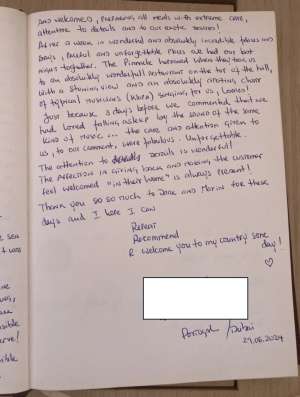 and welcomed, preparing all meals with extreme care,
attentive to details and to our exotic tastes!
After a week in wonderful and absolutely incredible places and
days, blissful and unforgettable! Plus we had our last
night together. The Pinnacle happened when they took us
to an absolutely wonderful restaurant on the top of the hill,
with a stunning view and an absolutely amazing choir
of typical musicians (Klapa) singing for us,
Just because 3 days before we commented that we
had loved falling asleep by the sound of the same
kind of music... the care and attention given to
us, to our comments, were fabulous. Unforgettable.
The attention to details is wonderful!
The affection in giving back and making the customer
feel welcomed "in their home" is always present!
Thank you so so much to and Marin for these
days and I hope I can
Repeat
Recommend
& welcome you to my country some
day!
♡
Portugal / Dubai
29.06.2024
sea
I was